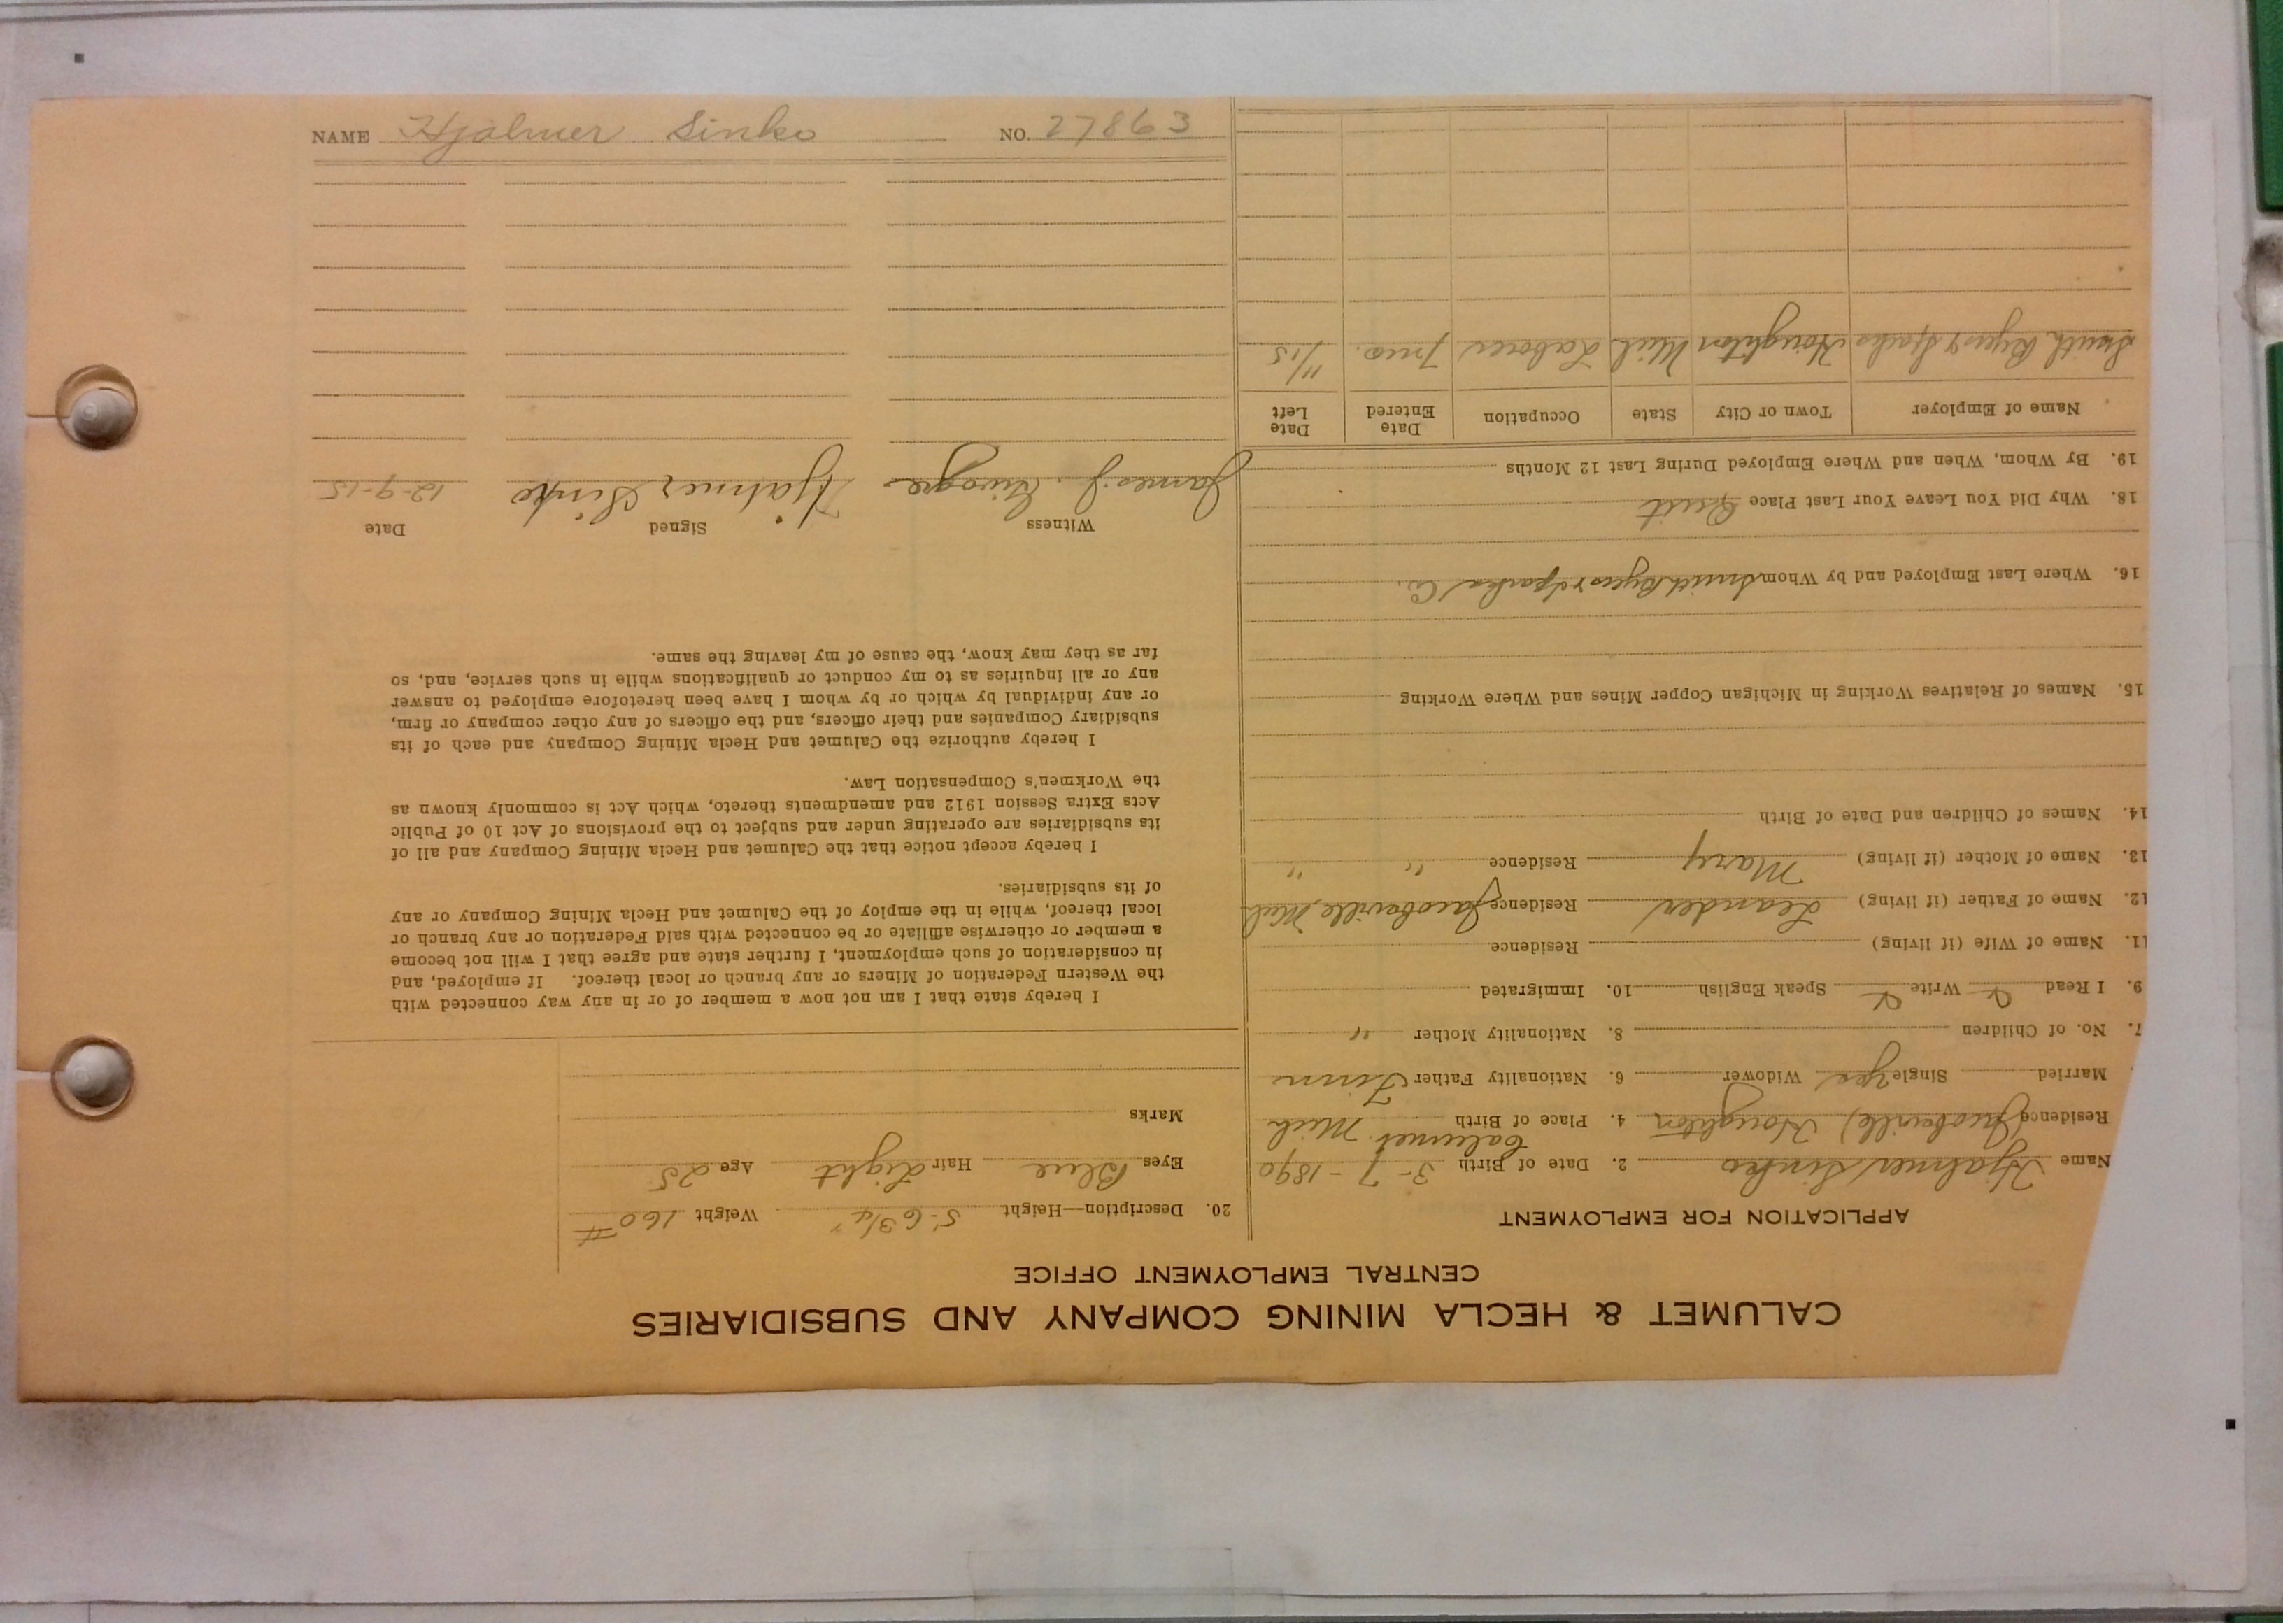 CALUMET & HECLA MINING COMPANY AND SUBSIDIARIES
CENTRAL EMPLOYMENT OFFICE
APPLICATION FOR EMPLOYMENT
Name Hjalmer Sinko 2. Date of Birth 3-7-1890
Residence Jacobsville, Houghton 4. Place of Birth Calumet Mich
Married Single yes Widower 6. Nationality Father Finn
7. No. of Children 8. Nationality Mother "
9. I Read Write Speak English 10. Immigrated
11. Name of Wife (if living) Residence
12. Name of Father (if living) Leander Residence Jacobsville, Mich
13. Name of Mother (if living) Mary Residence " "
14. Names of Children and Date of Birth
15. Names of Relatives Working in Michigan Copper Mines and Where Working
16. Where Last Employed and by Whom Smith Byers & Sparks Co.
18. Why Did You Leave Your Last Place Quit
19. By Whom, When and Where Employed During Last 12 Months
Name of Employer Town or City State Occupation Date Entered Date Left
Smith Byers & Sparks Houghton Mich Laborer 7 mos. 11/15
20. Description—Height 5'-6 3/4" Weight 160#
Eyes Blue Hair Light Age 25
Marks
I hereby state that I am not now a member of or in any way connected with
the Western Federation of Miners or any branch or local thereof. If employed, and
in consideration of such employment, I further state and agree that I will not become
a member or otherwise affiliate or be connected with said Federation or any branch or
local thereof, while in the employ of the Calumet and Hecla Mining Company or any
of its subsidiaries.
I hereby accept notice that the Calumet and Hecla Mining Company and all of
its subsidiaries are operating under and subject to the provisions of Act 10 of Public
Acts Extra Session 1912 and amendments thereto, which Act is commonly known as
the Workmen's Compensation Law.
I hereby authorize the Calumet and Hecla Mining Company and each of its
subsidiary Companies and their officers, and the officers of any other company or firm,
or any individual by which or by whom I have been heretofore employed to answer
any or all inquiries as to my conduct or qualifications while in such service, and, so
far as they may know, the cause of my leaving the same.
Witness Signed Date
James J. Hjalmer Sinko 12-9-15
NAME Hjalmer Sinko NO. 27863